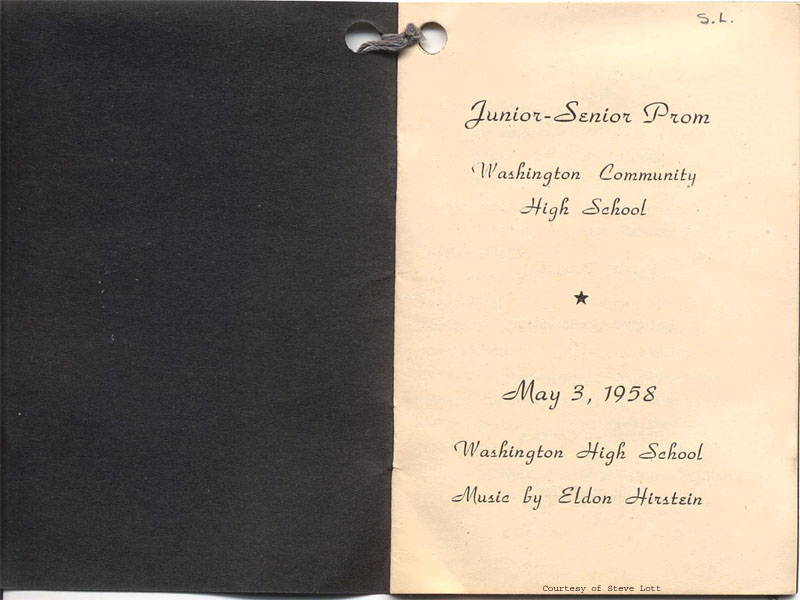 S.L.
Junior-Senior Prom
Washington Community
High School
May 3, 1958
Washington High School
Music by Eldon Hirstein
Courtesy of Steve Lott